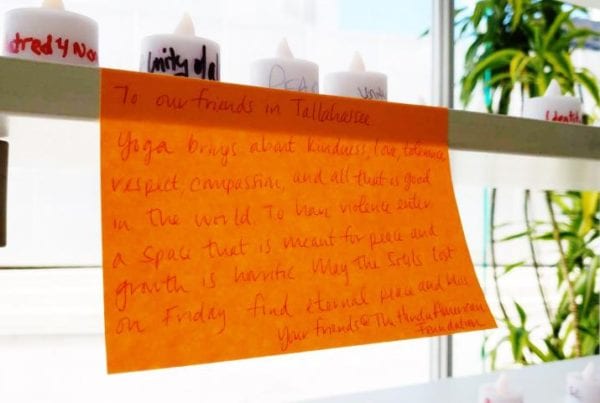 To our friends in Tallahassee
Yoga brings about kindness, love, tolerance,
respect, compassion, and all that is good
in the world. To have violence enter
a space that is meant for peace and
growth is horrific. May the souls lost
on Friday find eternal peace and bliss
Your friends @ The Hindu American
Foundation
unity
PEAC